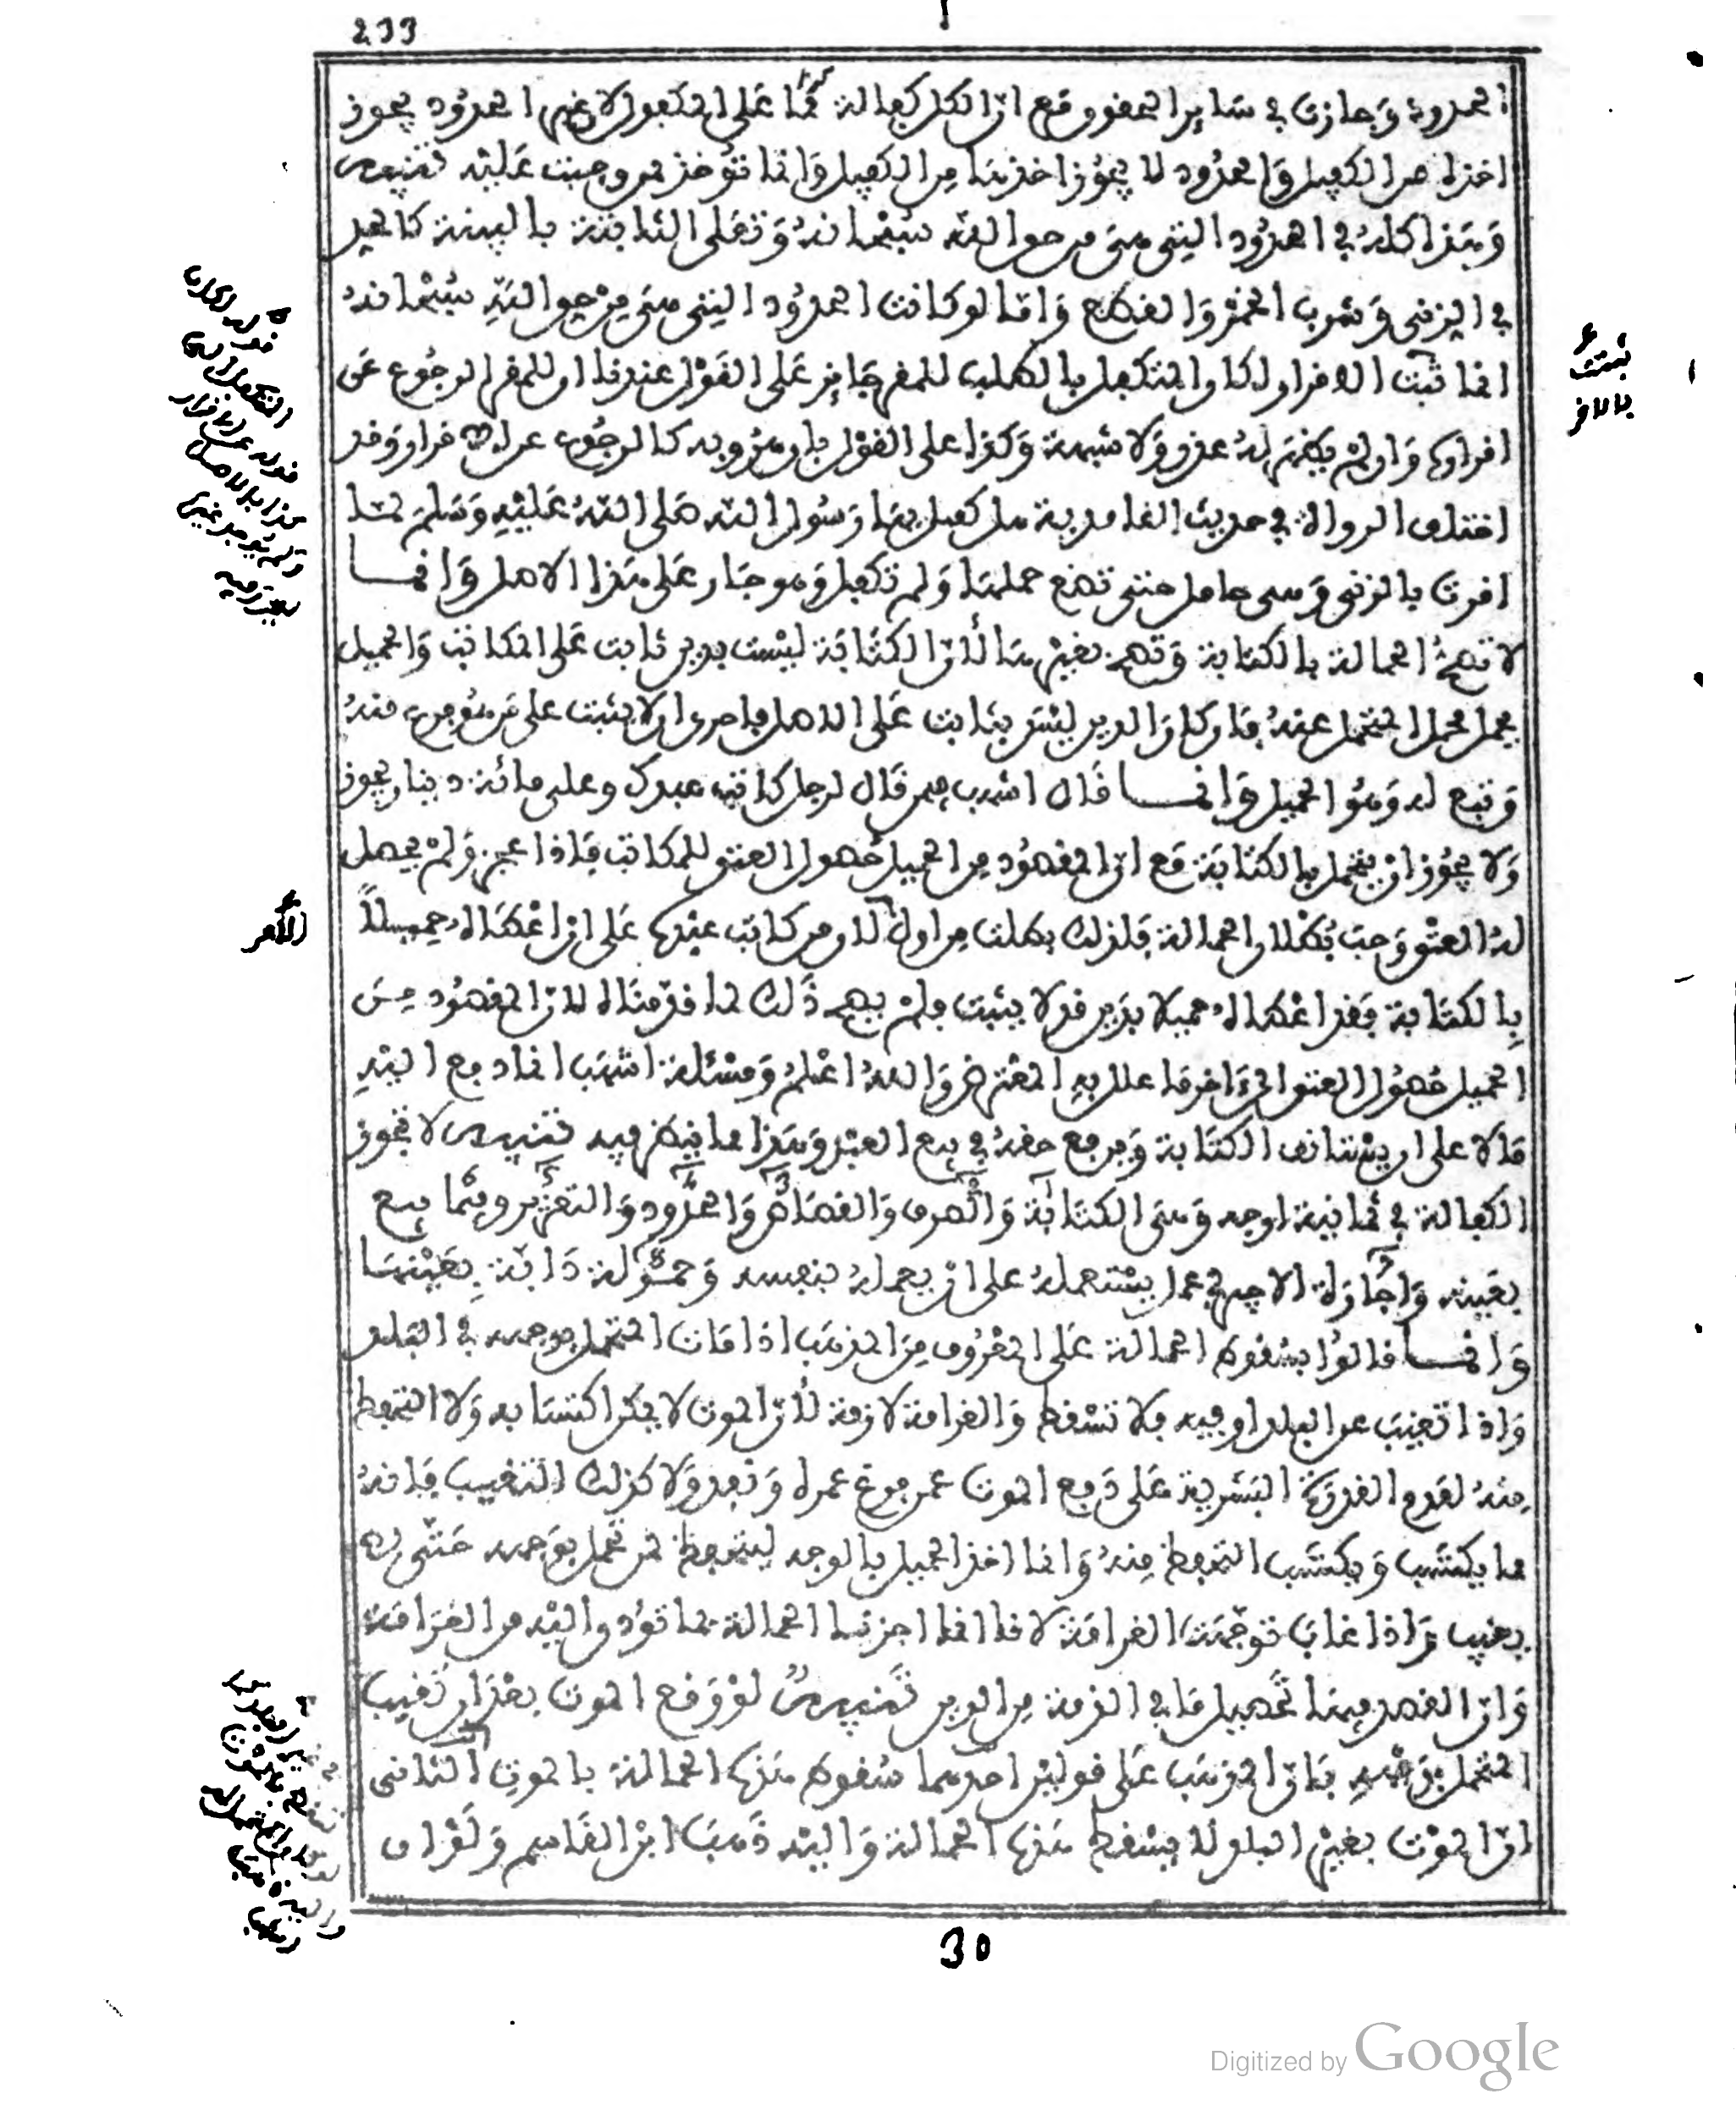 233
الحدود وجازت في سائر الحقوق مع ان الكل كفالة بما على المكفول لان غير الحدود يجوز
اخذه من الكفيل والحدود لا يجوز اخذها من الكفيل وانما تؤخذ ممن وجبت عليه تنبيه
وهذا كله في الحدود التي هي من حق الله سبحانه وتعلى الثابتة بالبينة كالحد
في الزنى وشرب الخمر والقطع واما لو كانت الحدود التي هي من حق الله سبحانه
انما ثبت الاقرار لكان التكفل بالطلب للمقر جائز على القول عندنا ان للمقر الرجوع عن
اقراره وان لم يظهر له عذر ولا شبهة وكذا على القول بان هروبه كالرجوع عن الاقرار وقد
اختلف الرواة في حديث الغامدية هل كفل بها رسول الله صلى الله عليه وسلم لما
اقرت بالزنى وهي حامل حتى تضع حملها ولم تكفل وهو جار على هذا الاصل وانما
لا تصح الحمالة بالكتابة وتصح بغيرها لأن الكتابة ليست بدين ثابت على المكاتب والحميل
يحل محل المتحمل عنه فان كان الدين ليس بثابت على الاصل فاحرى ان لا يثبت على من هو فرع منه
وتبع له وهو الحميل وانما قال اشهب فيمن قال لرجل كاتب عبدك وعلي مائة دينار يجوز
ولا يجوز ان يتحمل بالكتابة مع ان المقصود من الحميل حصول العتق للمكاتب فاذا عجز ولم يحصل
له العتق وجب بطلان الحمالة فلذلك بطلت من اول الامر لان من كاتب عبده على ان اعطاه حميلا
بالكتابة فقد اعطاه حميلا بدين قد لا يثبت فلم يصح ذلك لما قدمناه لان المقصود من
الحميل حصول العتق الى ءاخر ما علل به المعترض والله اعلم ومسئلة اشهب انما دفع اليه
مالا على ان يستانف الكتابة ويرفع حقه في بيع العبد وهذا مما ينظر فيه تنبيه لا تجوز
الكفالة في ثمانية اوجه وهي الكتابة والصرف والقصاص والحدود والتعزير وفيما بيع
بعينه واجارة الاجير في عمل يستعمله على ان يعمله بنفسه وحمولة دابة بعينها
وانما قالوا بسقوط الحمالة على المعروف من المذهب اذا مات المتحمل بوجهه في البلد
واذا تغيب عن البلد او فيه فلا تسقط والغرامة لازمة لأن الموت لا يمكن اكتسابه ولا التحفظ
منه لعدم القدرة البشرية على دفع الموت عمن فرغ عمره ونفد ولا كذلك التغيب فانه
مما يكتسب ويكتسب التحفظ منه وانما اخذ الحميل بالوجه ليتحفظ ممن تحمل بوجهه حتى لا
يغيب واذا غاب توجهت الغرامة لانا انما اجزنا الحمالة بما تؤدي اليه من الغرامة
وان القصد فيها تحصيل ما في الذمة من الدين تنبيه لو وقع الموت بعد ان تغيب
المتحمل بوجهه فان المذهب على قولين احدهما سقوط هذه الحمالة بالموت الثاني
ان الموت بغير البلد لا يسقط هذه الحمالة واليه ذهب ابن القاسم ولو ان
الامر
30
Digitized by Google